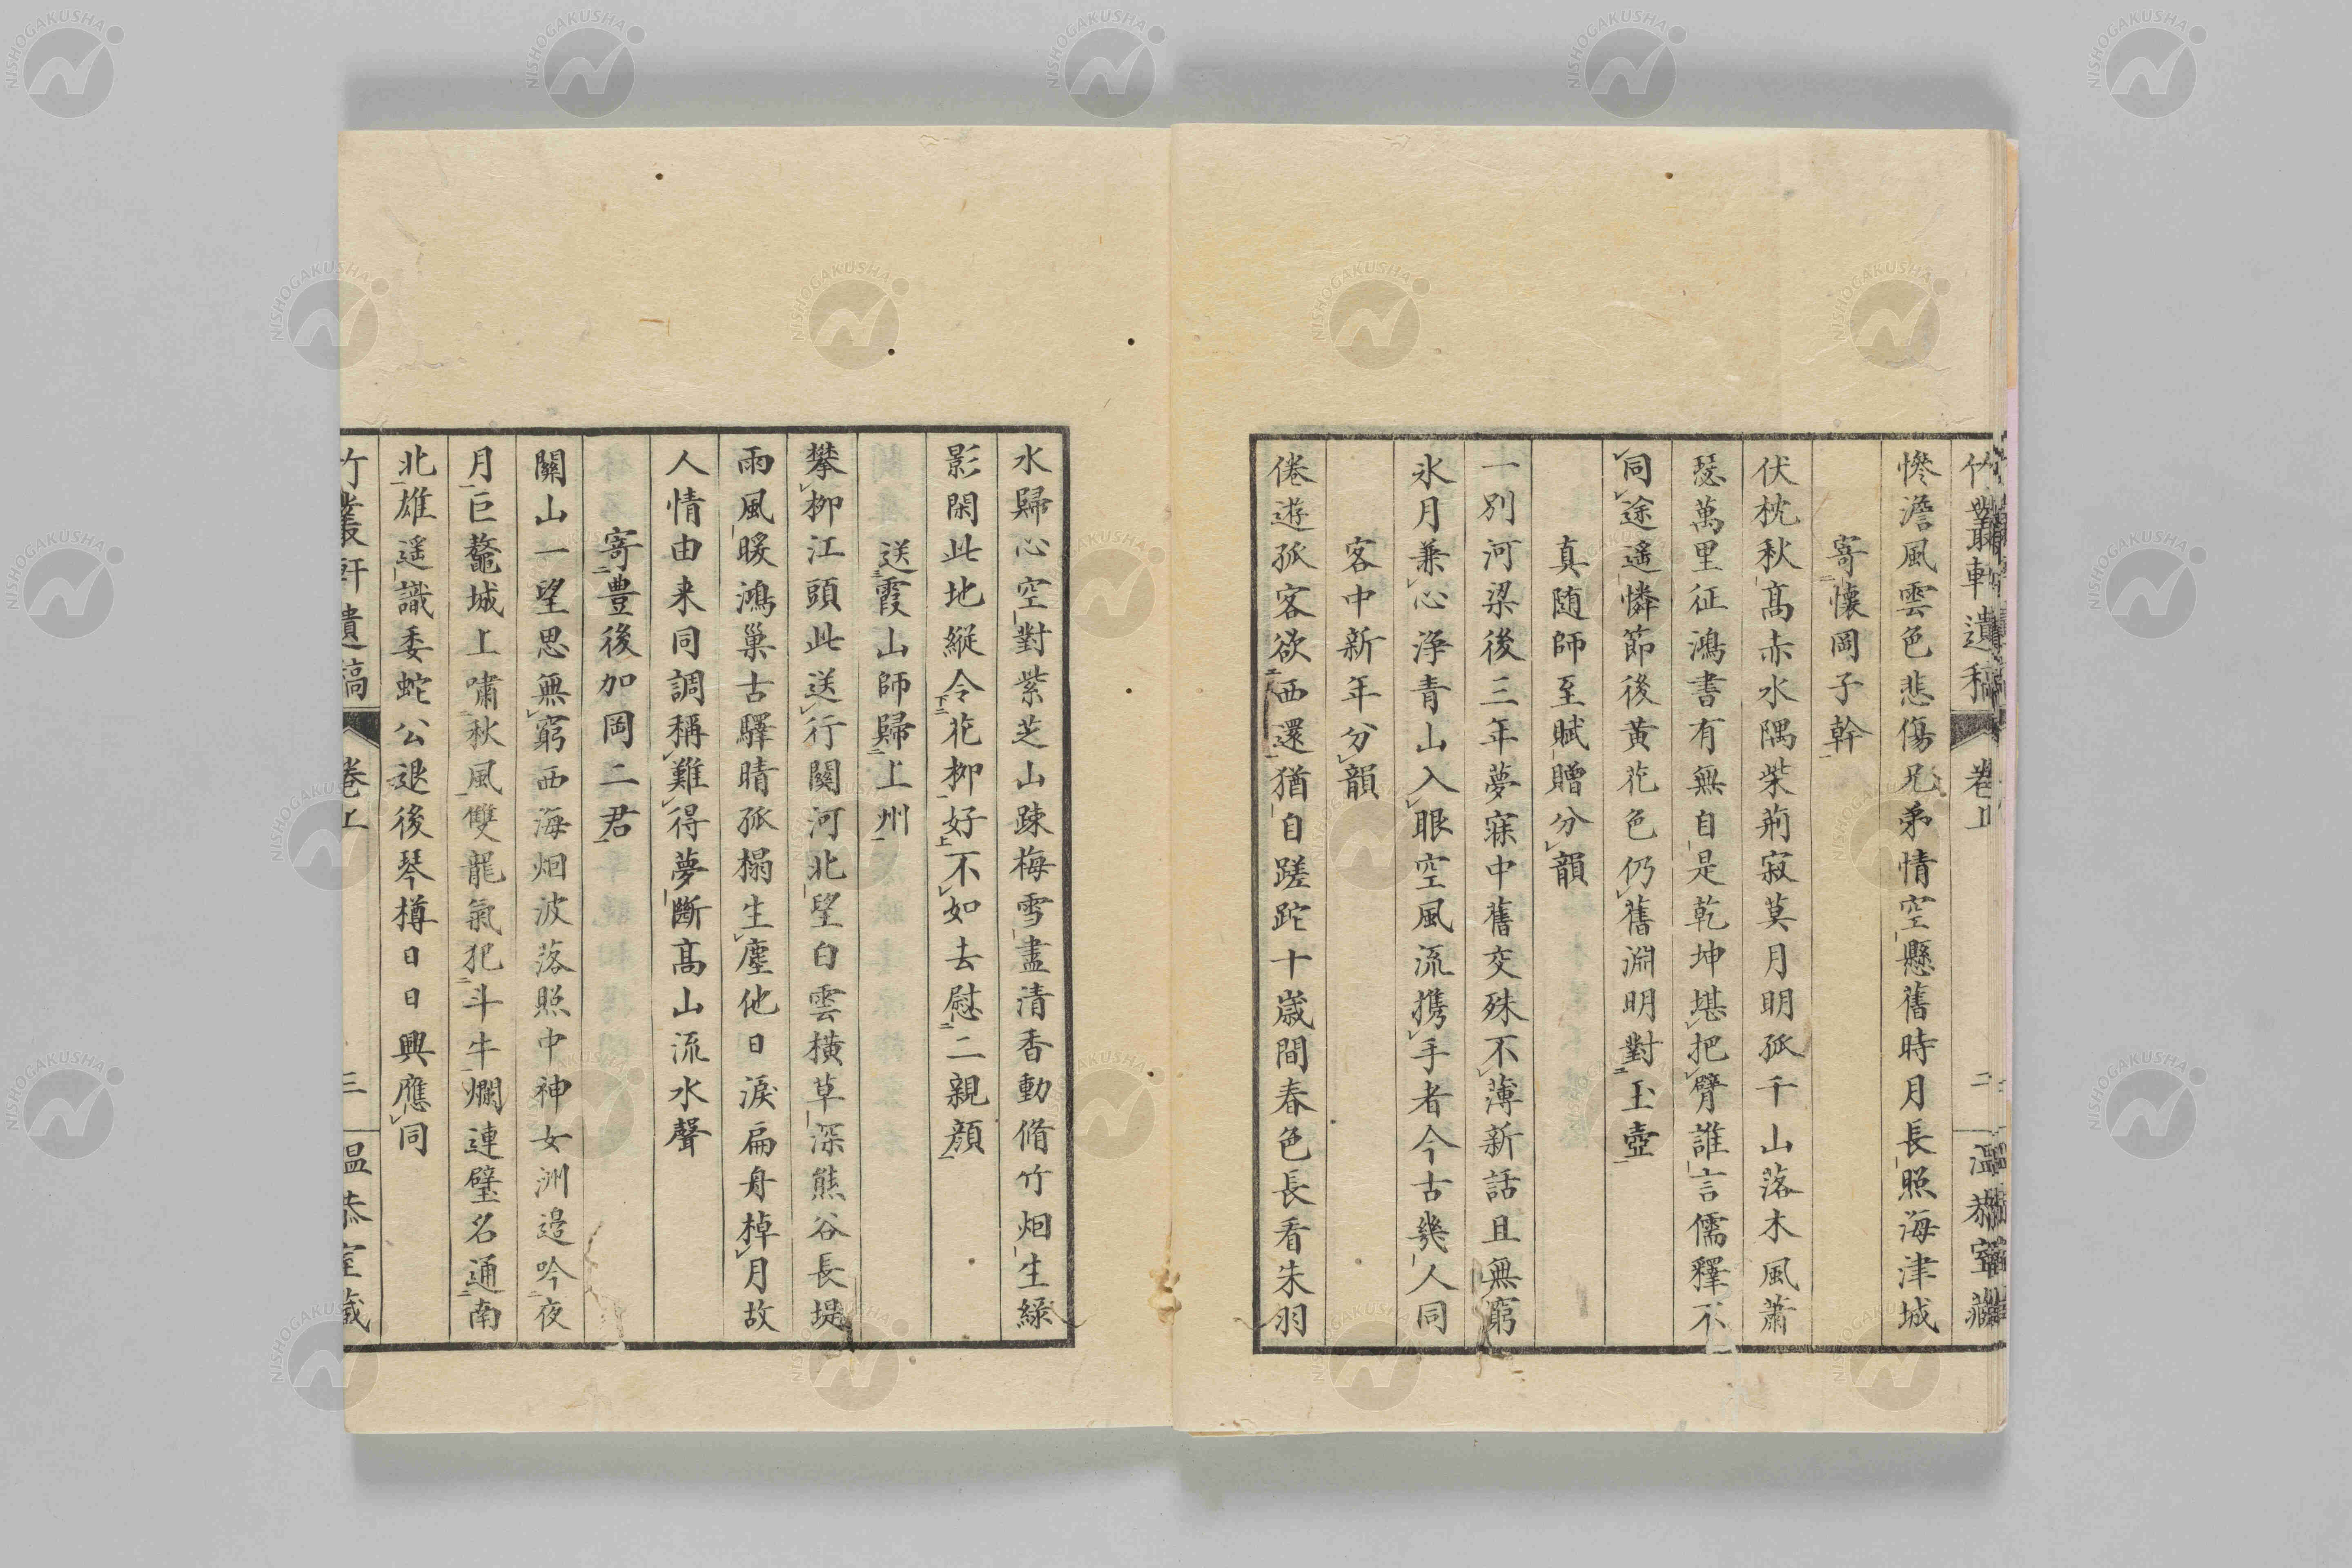 竹叢軒遺稿 卷上 二 溫恭室藏
慘澹風雲色悲傷兄弟情空懸舊時月長照海津城
寄懷岡子幹
伏枕秋髙赤水隅柴荊寂莫月明孤千山落木風蕭
瑟萬里征鴻書有無自是乾坤堪把臂誰言儒釋不
同途遙憐節後黃花色仍舊淵明對玉壺
真随師至賦贈分韻
一別河梁後三年夢寐中舊交殊不薄新話且無窮
氷月兼心浄青山入眼空風流携手者今古幾人同
客中新年分韻
倦遊孤客欲西還猶自蹉跎十歲間春色長看朱羽
水歸心空對紫芝山踈梅雪盡清香動脩竹烟生綠
影閑此地縱令花柳好不如去慰二親顏
送霞山師歸上州
攀柳江頭此送行關河北望白雲橫草深熊谷長堤
雨風暖鴻巢古驛晴孤榻生塵他日淚扁舟棹月故
人情由来同調稱難得夢斷髙山流水聲
寄豊後加岡二君
關山一望思無窮西海烟波落照中神女洲邉吟夜
月巨鼇城上嘯秋風雙龍氣犯斗牛爛連璧名通南
北雄遥識委蛇公退後琴樽日日興應同
竹叢軒遺稿 卷上 三 溫恭室藏
NISHOGAKUSHA